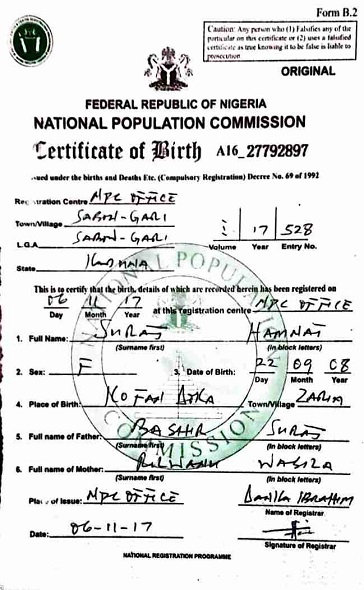 Form B.2
Caution: Any person who (1) Falsifies any of the
particular on this certificate or (2) uses a falsified
certificate as true knowing it to be false is liable to
prosecution
ORIGINAL
FEDERAL REPUBLIC OF NIGERIA
NATIONAL POPULATION COMMISSION
Certificate of Birth A16_27792897
issued under the births and Deaths Etc. (Compulsory Registration) Decree No. 69 of 1992
Registration Centre NPC OFFICE
Town/Village SABON-GARI
L.G.A. SABON-GARI
17 528
Volume Year Entry No.
State KADUNA
This is to certify that the birth, details of which are recorded herein has been registered on
06 11 17 at this registration centre NPC OFFICE
Day Month Year
1. Full Name: SURAJ HAMNAT
(Surname first) (In block letters)
2. Sex: F 3. Date of Birth: 22 09 08
Day Month Year
4. Place of Birth: KOFAR Town/Village ZARIA
5. Full name of Father: BASHIR SURAJ
(Surname first) (In block letters)
6. Full name of Mother: RILWANU WASILA
(Surname first) (In block letters)
Place of Issue: NPC OFFICE DANILA IBRAHIM
Name of Registrar
Date: 06-11-17
Signature of Registrar
NATIONAL REGISTRATION PROGRAMME
NATIONAL POPULATION COMMISSION